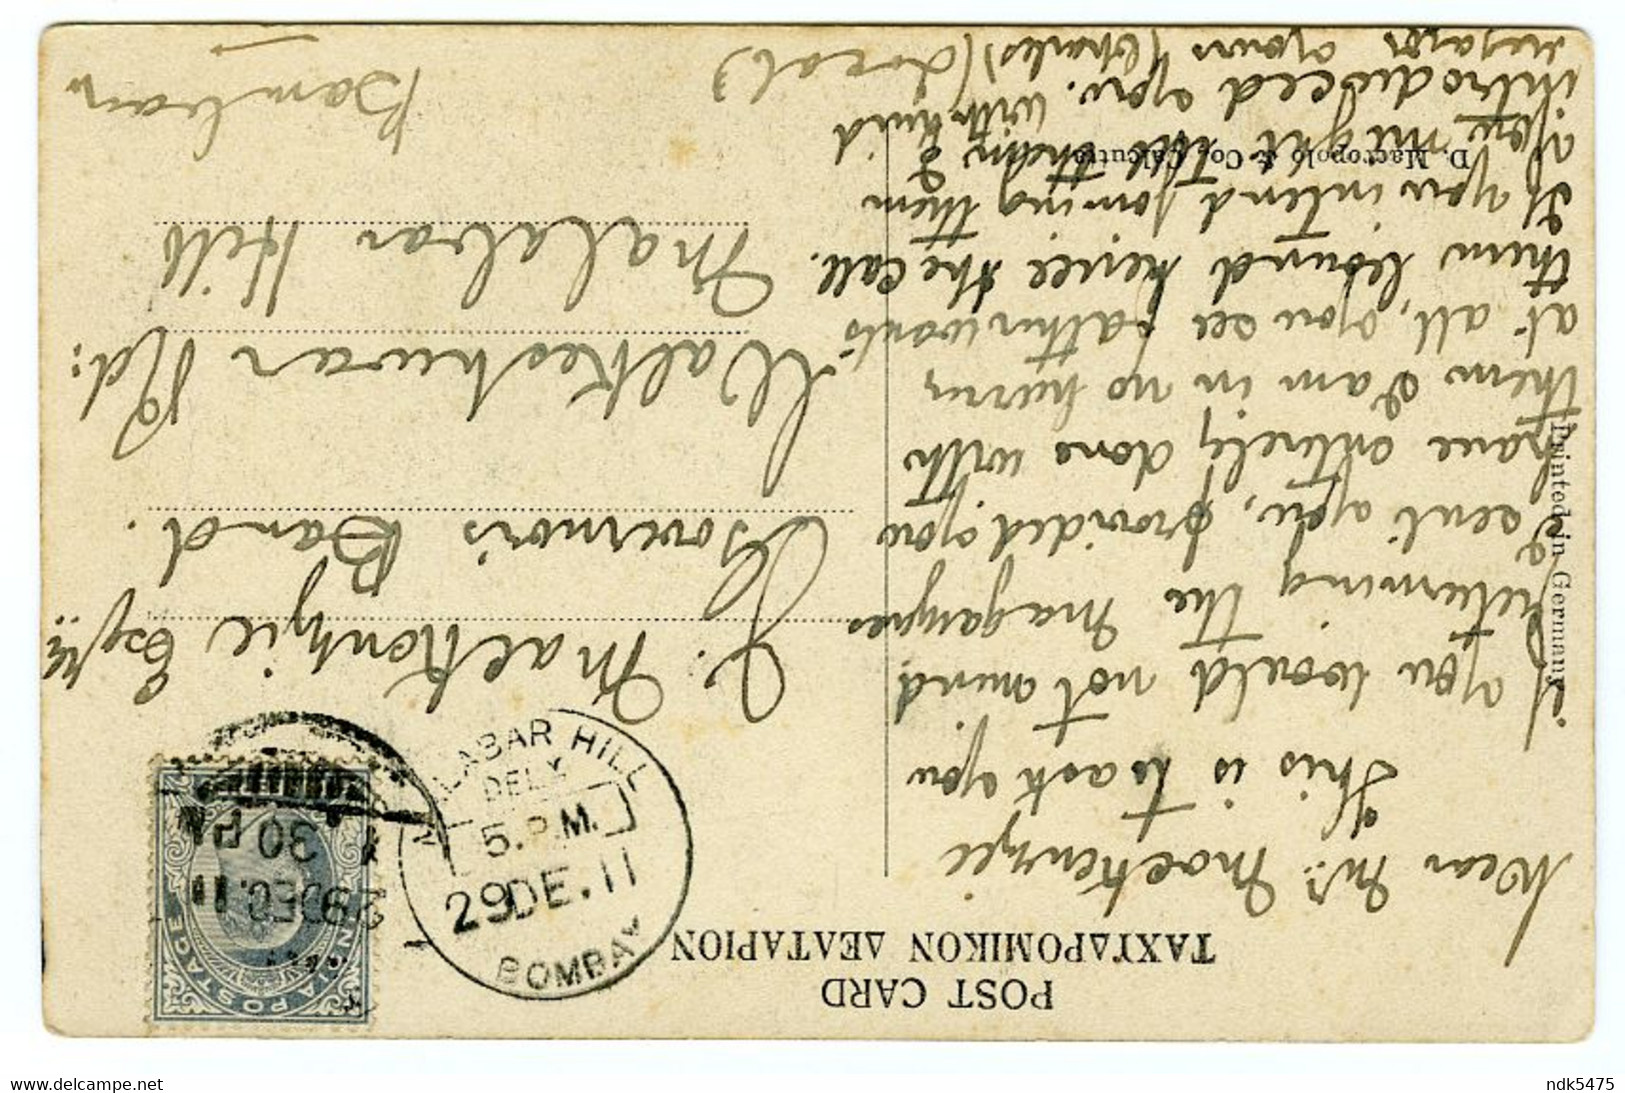 POST CARD
ΤΑΧΥΔΡΟΜΙΚΟΝ ΔΕΛΤΑΡΙΟΝ
Dear Mr. MacKenzie
This is to ask you
if you would not mind
returning the magazines
I sent you, provided you
have entirely done with
them I am in no hurry
at all, you see father wants
them bound hence the call.
If you intend joining them
you might
introduced you. with kind
regards yours (Charles) (Local)
J. MacKenzie Esqre
Governor's Band.
Walkeshwar Rd:
Malabar Hill
Bombay
D. Macropolo & Co. Calcutta
Printed in Germany
MALABAR HILL
DELY
5. P.M.
29 DE. 11
BOMBAY
1 30 PM
29 DEC. 11
INDIA POSTAGE
ndk5475